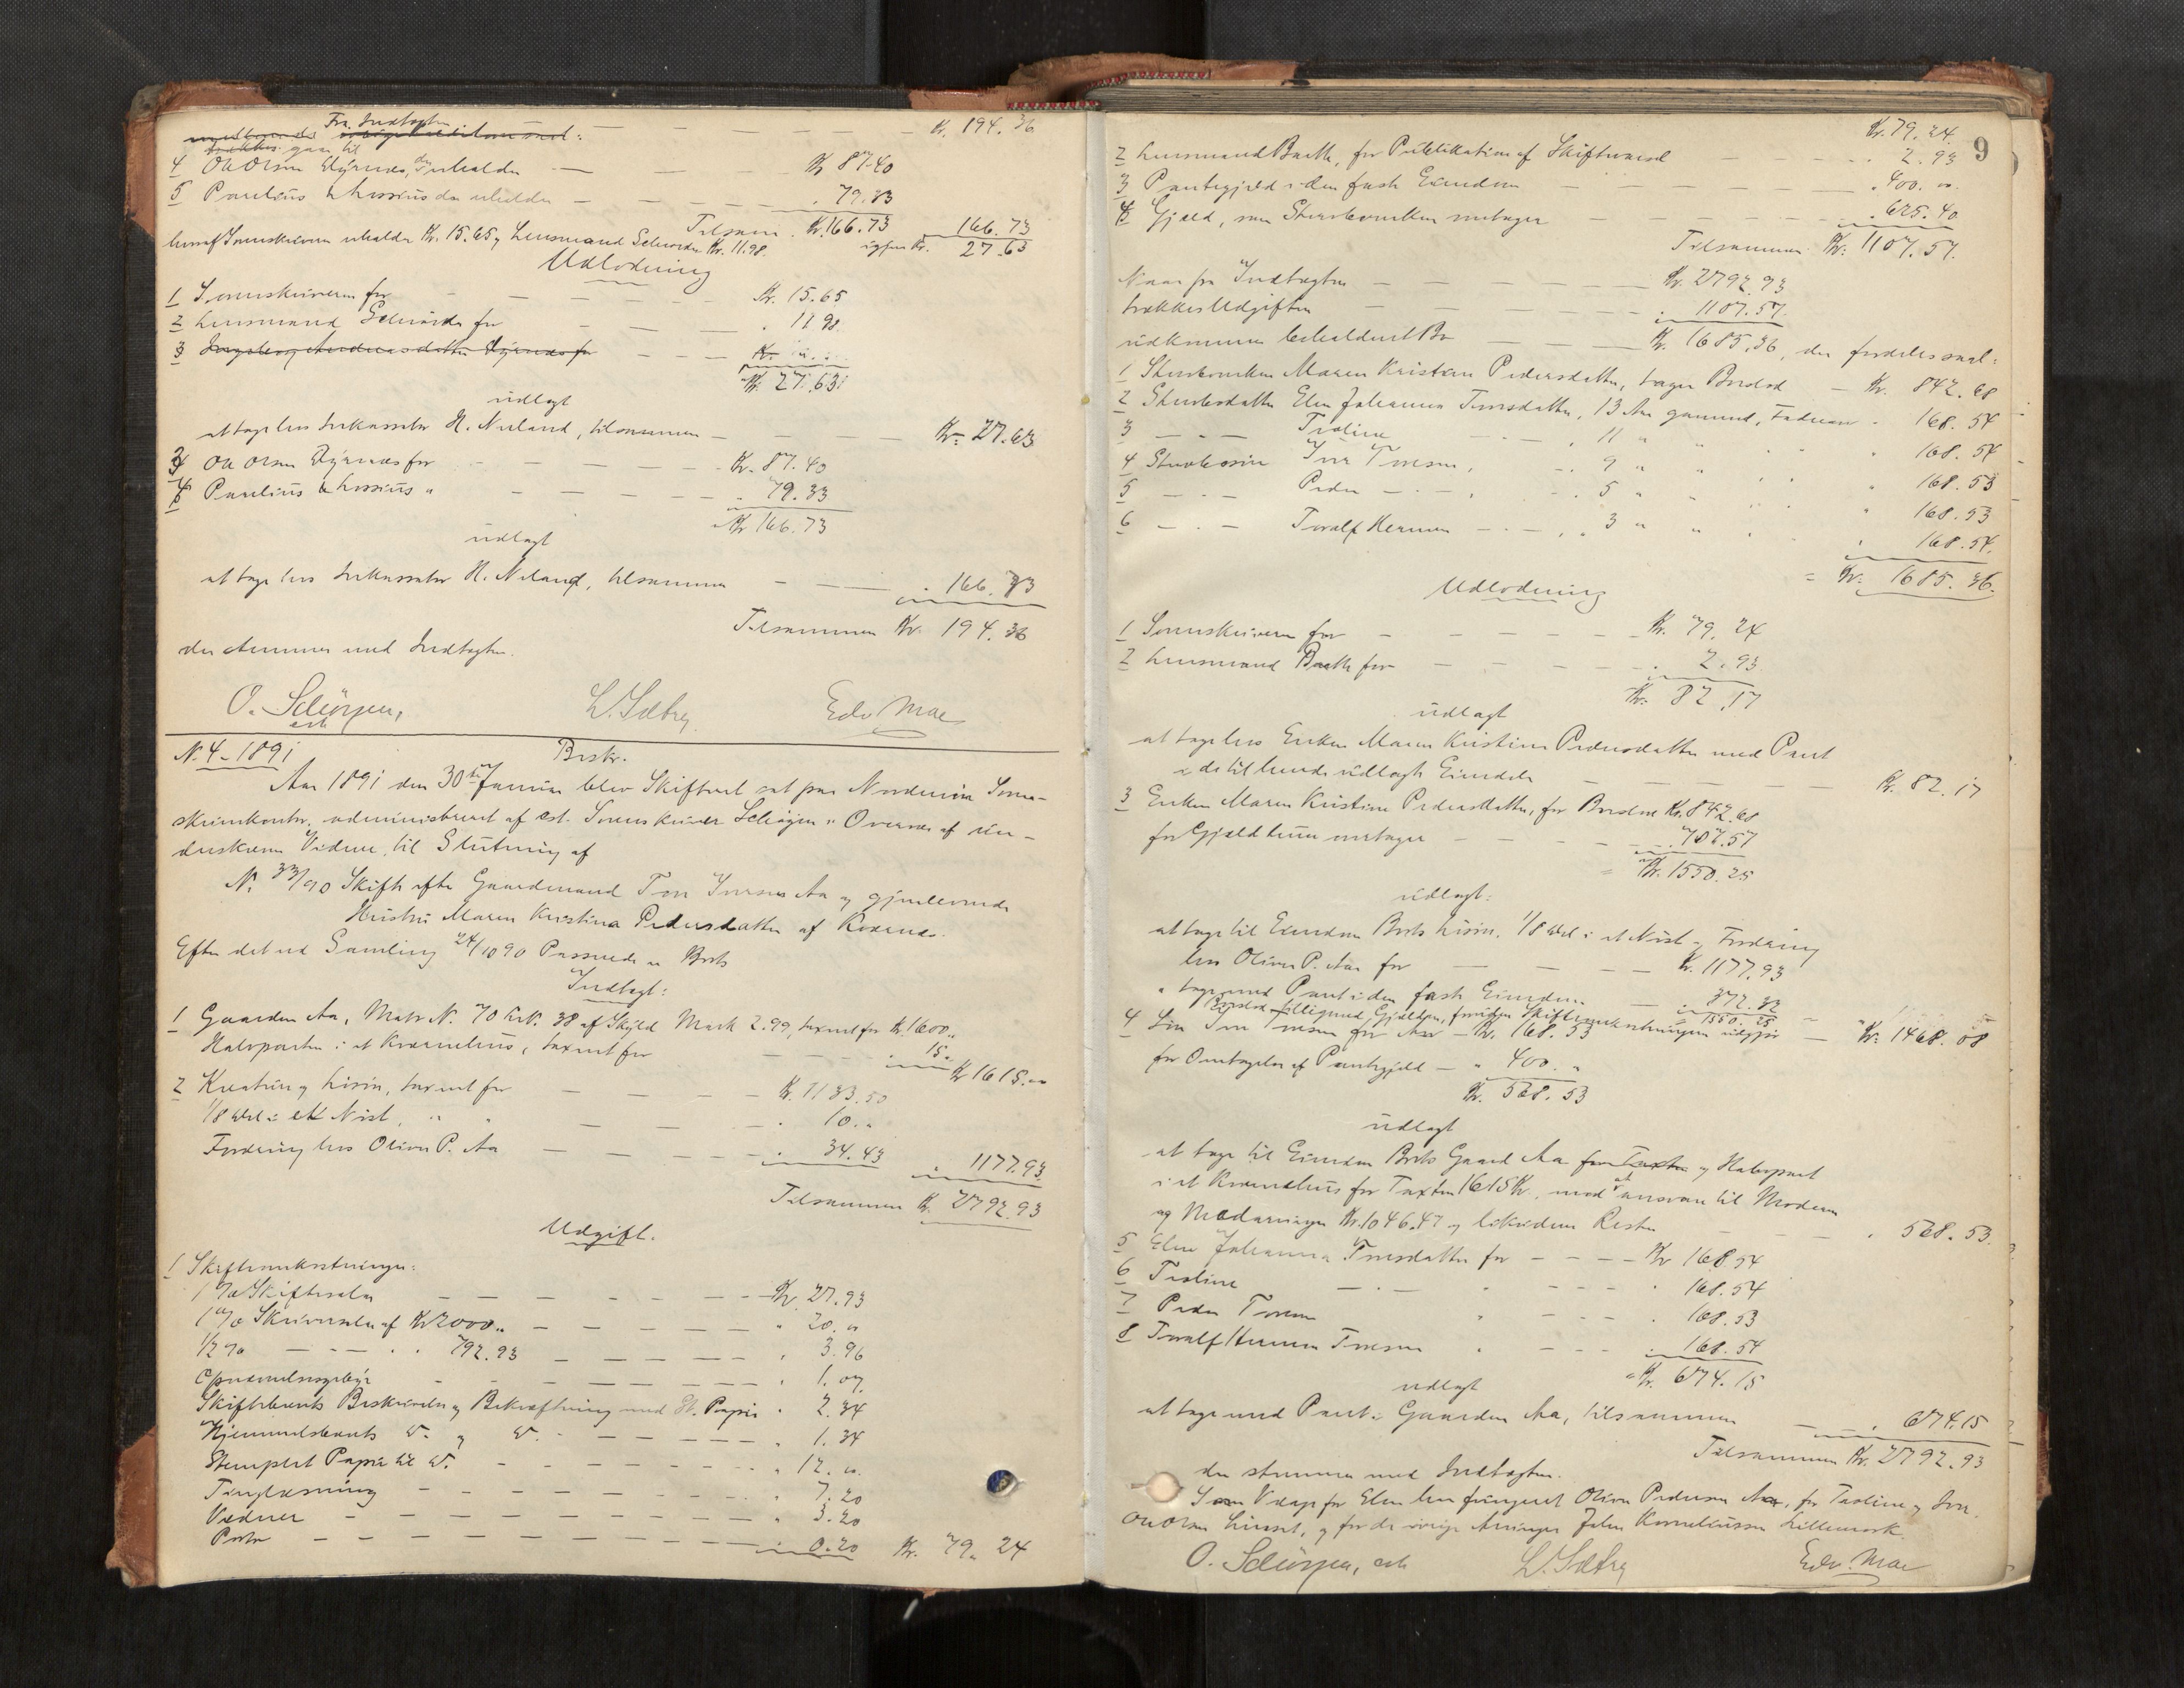 Fra Indtægten Kr. 194.36
trækkes gaar til
4 Ole Olsen Dyrnes, der udbetales Kr 87.40
5 Paulius der udbetales . 79.33
Tilsammen Kr. 166.73 166.73
heraf Sorenskriveren udbetales Kr. 15.65 og Lensmand Kr. 11.98. igjen Kr. 27.63
Udlodning
1 Sorenskriveren for Kr. 15.65
2 Lensmand for . 11.98
3
Kr. 27.63
udlagt
at tage hos Inkassator H. Neland, tilsammen Kr. 27.63
3 Ole Olsen Dyrnes for Kr. 87.40
4 Paulius " . 79.33
Kr 166.73
udlagt
at tage hos Inkassator H. Neland, tilsammen . 166.73
Tilsammen Kr. 194.36
der stemmer med Indtægten.
O. Schiörgen, cst. L. Sætrej Edv. Moe
N. 4 - 1891 Beskr.
Aar 1891 den 30te Januar blev Skifteret sat paa Nordmøre Soren-
skriverkontor, administreret af cst. Sorenskriver i Overvær af un-
derskrevne Vidner, til Slutning af
N. 33/90 Skifte efter Gaardmand Tore Iversen Aa og gjenlevende
Hustru Maren Kristina Pedersdatter af Kvernes.
Efter det ved Samling 24/10 90 Passerede er Boets
Indtægt:
1 Gaarden Aa, Matr N. 70 Brk. 38 af Skyld Mark 2.99, taxeret for Kr. 1600..
Halvparten i et Kværnehus, taxeret for 15.. Kr 1615.00
2 Kreatur og Løsøre, taxeret for Kr. 1133.50
1/8 Del i et Nøst, " " . 10..
Fordring hos Oliver P. Aa . 34.43 . 1177.93
Tilsammen Kr. 2792.93
Udgift.
1 Skifteomkostninger:
1 % Skiftesalær Kr. 27.93
1 % Skriversalær af Kr 2000.. " 20.00
1/2 % — " — . . 792.93 . 3.96
. 1.07
Skiftebrevets Beskrivelse og Bekræftning med St. Papir . 2.34
Hjemmelsbrevets D. og D. . 1.34
Stemplet Papir til D. . 12.00
Tinglæsning . 7.20
Vidner . 3.20
Porto . 0.20 Kr. 79.24
9
Kr. 79.24
2 Lensmand Barth, for Publikation af Skifteværel . 2.93
3 Pantegjæld i den faste Eiendom . 400.00
4 Gjæld, som Stervboenken overtager . 625.40
Tilsammen Kr. 1107.57.
Naar fra Indtægten Kr. 2792.93
trækkes Udgiften . 1107.57.
udkommer beholdent Bo Kr. 1685.36, der fordeles saal:
1 Stervboenken Maren Kristina Pedersdatter, tager Boslod Kr. 842.68
2 Stervbodatter Elen Johanna Toresdatter, 13 Aar gammel, Fadrenearv . 168.54
3 — " — Troline — " — , 11 " " " 168.54
4 Stervbosøn Iver Toresen, — . 9 " " " 168.53
5 — . — Peder — . — , 5 " " " 168.53
6 — . — Toralf Herman — . — , 3 " " 168.54.
= Kr. 1685.36.
Udlodning
1 Sorenskriveren for Kr. 79.24
2 Lensmand Barth for . 2.93
Kr. 82.17
udlagt
at tage hos Enken Maren Kristine Pedersdatter med Pant
i det til hende udlagte Eiendele Kr. 82.17
3 Enken Maren Kristine Pedersdatter, for Boslod Kr. 842.68
for Gjæld hun overtager . 707.57
= Kr. 1550.25
udlagt:
at tage til Eiendom Boets Løsøre, 1/8 Del i et Nøst og Fordring
hos Oliver P. Aa for Kr. 1177.93
" tage med Pant i den faste Eiendom . 372.32
= 1550.25
Boslod tilligemed Gjælden, foruden Skifteomkostningerne udgjør Kr. 1468.08
4 Søn Iver Toresen for Arv Kr. 168.53
for Overtagelse af Pantegjæld " 400. "
Kr. 568.53
udlagt
at tage til Eiendom Boets Gaard Aa og Halvpart
i et Kværnehus for Taxten 1615 Kr., mod at ansvare til Moderen
og Medarvinger Kr. 1046.47 og likvidere Resten . 568.53.
5 Elen Johanna Toresdatter for Kr 168.54
6 Troline — . — " . 168.54
7 Peder Toresen " . 168.53
8 Toralf Herman Toresen " . 168.54
Kr. 674.15
udlagt
at tage med Pant i Gaarden Aa, tilsammen . 674.15
Tilsammen Kr. 2792.93
der stemmer med Indtægten.
Som Værge for Elen har fungeret Oliver Pedersen Aa, for Troline og Iver
Ole Olsen, og for de øvrige Arvinger Johan Korneliussen Lillemork.
O. Schiörgen, cst. L. Sætrej Edv. Moe